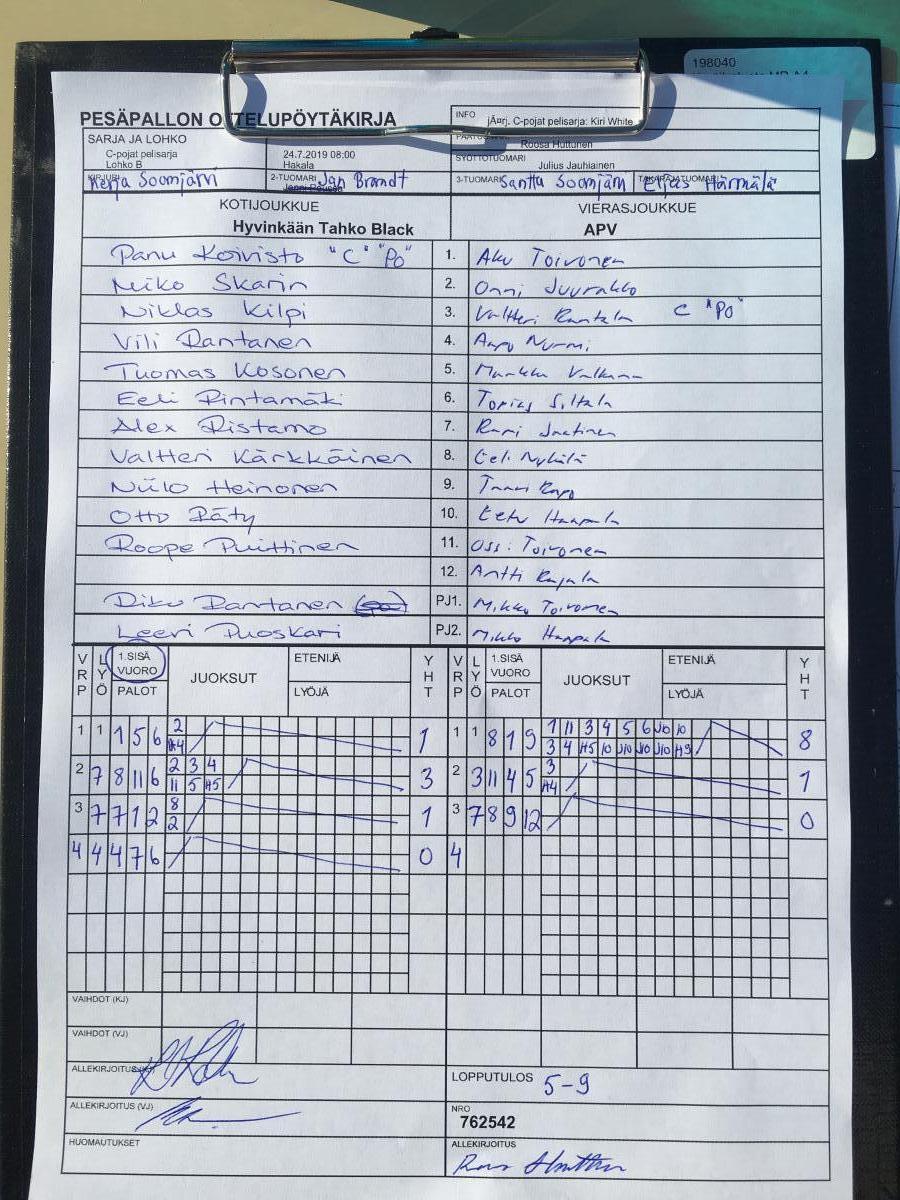 198040
PESÄPALLON OTTELUPÖYTÄKIRJA
INFO jÄ¤rj. C-pojat pelisarja: Kiri White
SARJA JA LOHKO
C-pojat pelisarja
Lohko B
24.7.2019 08:00
Hakala
Roosa Huttunen
SYÖTTÖTUOMARI
Julius Jauhiainen
KIRJURI Soomjärvi
2-TUOMARI Jan Brandt
3-TUOMARI Santtu Soomjärvi
TAKARAJATUOMARI Härmälä
KOTIJOUKKUE VIERASJOUKKUE
Hyvinkään Tahko Black APV
Panu Koivisto "C" "Po" 1. Aku Toivonen
Miko Skarin 2. Onni Juurakko
Niklas Kilpi 3. Valtteri Rantala C "Po"
Vili Rantanen 4. Aapo Nurmi
Tuomas Kosonen 5. Markku
Eeli Rintamäki 6. Topias Siltala
Alex Ristamo 7. Rami
Valtteri Kärkkäinen 8. Eeli
Niilo Heinonen 9.
Otto Räty 10. Eetu Haapala
Roope Puittinen 11. Ossi Toivonen
12. Antti Rajala
Riku Rantanen PJ1. Mikko Toivonen
Leevi Puoskari PJ2. Mikko Haapala
VRP LYÖ 1.SISÄ VUORO PALOT JUOKSUT ETENIJÄ LYÖJÄ YHT VRP LYÖ 1.SISÄ VUORO PALOT JUOKSUT ETENIJÄ LYÖJÄ YHT
1 1 1 5 6 2 1 1 1 8 1 9 1 11 3 4 5 6 10 10 8
H4 3 4 H5 10 10 10 10 H9
2 7 8 11 6 2 3 4 3 2 3 11 4 5 3 1
11 5 H5 H4
3 7 7 1 2 8 1 3 7 8 9 12 0
2
4 4 4 7 6 0 4
VAIHDOT (KJ)
VAIHDOT (VJ)
ALLEKIRJOITUS (KJ)
LOPPUTULOS 5-9
ALLEKIRJOITUS (VJ)
NRO
762542
HUOMAUTUKSET
ALLEKIRJOITUS